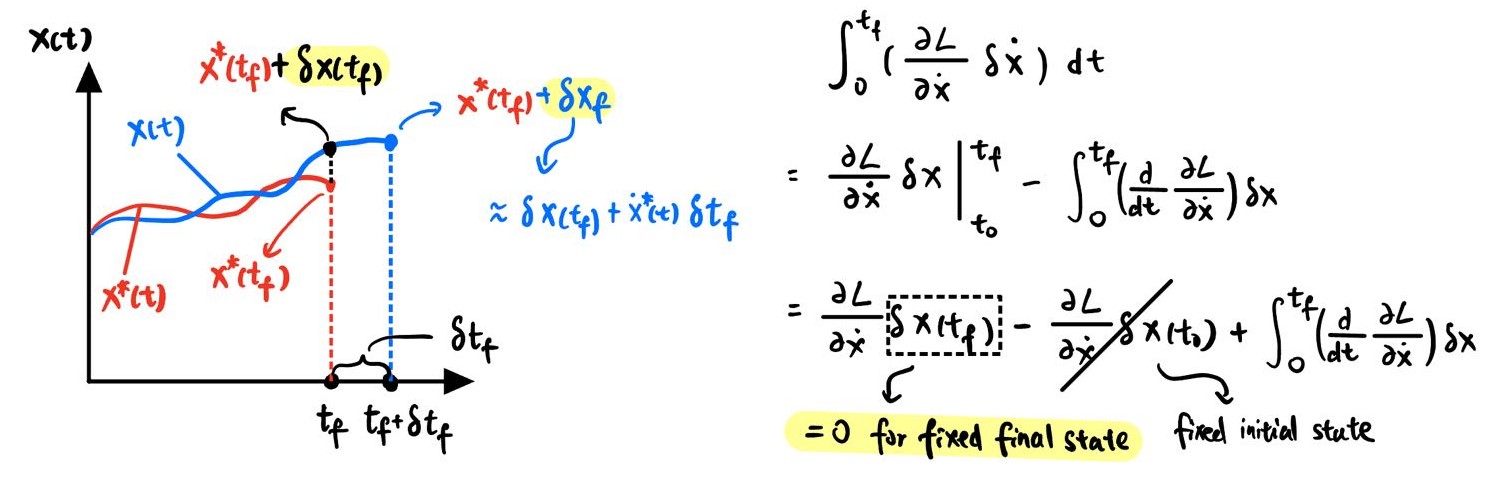 x(t)
x*(t_f) + δx(t_f)
x*(t_f) + δx_f
x(t)
≈ δx(t_f) + ẋ*(t) δt_f
x*(t)
x*(t_f)
δt_f
t_f
t_f+δt_f
∫_0^{t_f} (∂L/∂ẋ δẋ) dt
= ∂L/∂ẋ δx |_{t_0}^{t_f} - ∫_0^{t_f} (d/dt ∂L/∂ẋ) δx
= ∂L/∂ẋ δx(t_f) - ∂L/∂ẋ δx(t_0) + ∫_0^{t_f} (d/dt ∂L/∂ẋ) δx
=0 for fixed final state
fixed initial state